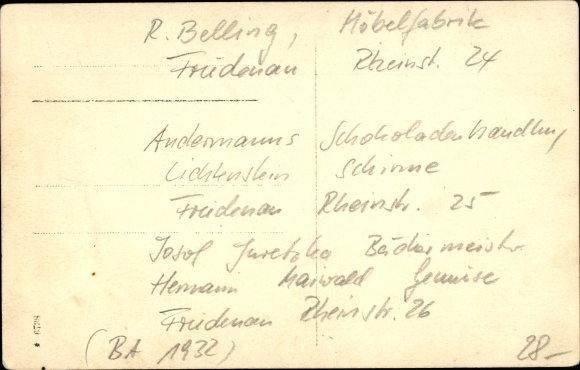 R. Belling, Möbelfabrik
Friedenau Rheinst. 24
Andermanns Schokoladenhandlung
Lichtenstein Schirme
Friedenau Rheinstr. 25
Josef Juretzka Bäckermeister
Hermann Maiwald Gemüse
Friedenau Rheinstr. 26
(BA 1932)
28-
* 6798